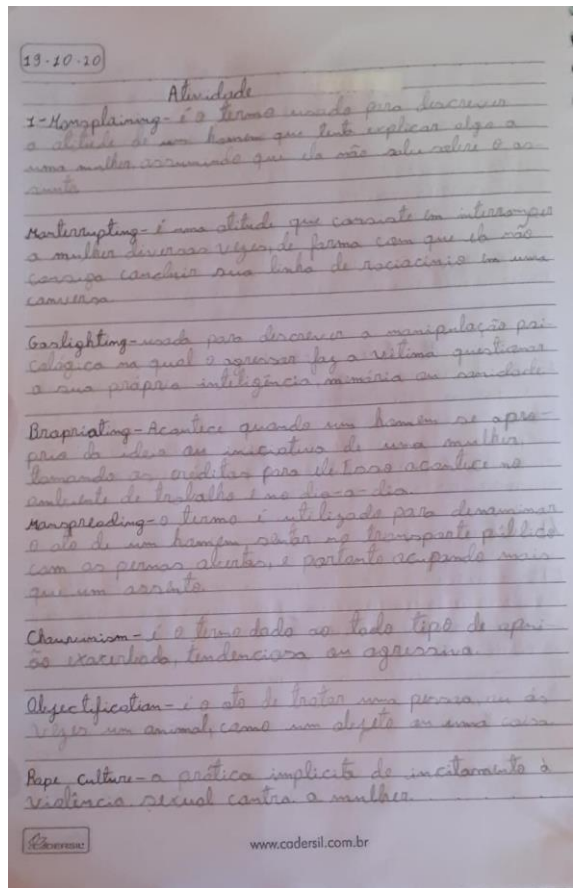 19-10-20
Atividade
1-Mansplaining-é o termo usado para descrever
a atitude de um homem que tenta explicar algo a
uma mulher, assumindo que ela não sabe sobre o as-
sunto.
Manterrupting-é uma atitude que consiste em interromper
a mulher diversas vezes, de forma com que ela não
consiga concluir sua linha de raciocínio em uma
conversa.
Gaslighting-usada para descrever a manipulação psi
cológica na qual o agressor faz a vítima questionar
a sua própria inteligência, memória ou sanidade.
Bropriating-Acontece quando um homem se apro-
pria da ideia ou iniciativa de uma mulher,
tomando os créditos para ele. Isso acontece no
ambiente de trabalho e no dia-a-dia.
Manspreading-o termo é utilizado para denominar
o ato de um homem sentar no transporte público
com as pernas abertas, e portanto ocupando mais
que um assento.
Chauvinism-é o termo dado ao todo tipo de opini-
ão exacerbada, tendenciosa ou agressiva.
Objectification-é o ato de tratar uma pessoa, ou às
vezes um animal, como um objeto ou uma coisa.
Rape Culture-a prática implícita do incitamento à
violência sexual contra a mulher.
www.cadersil.com.br